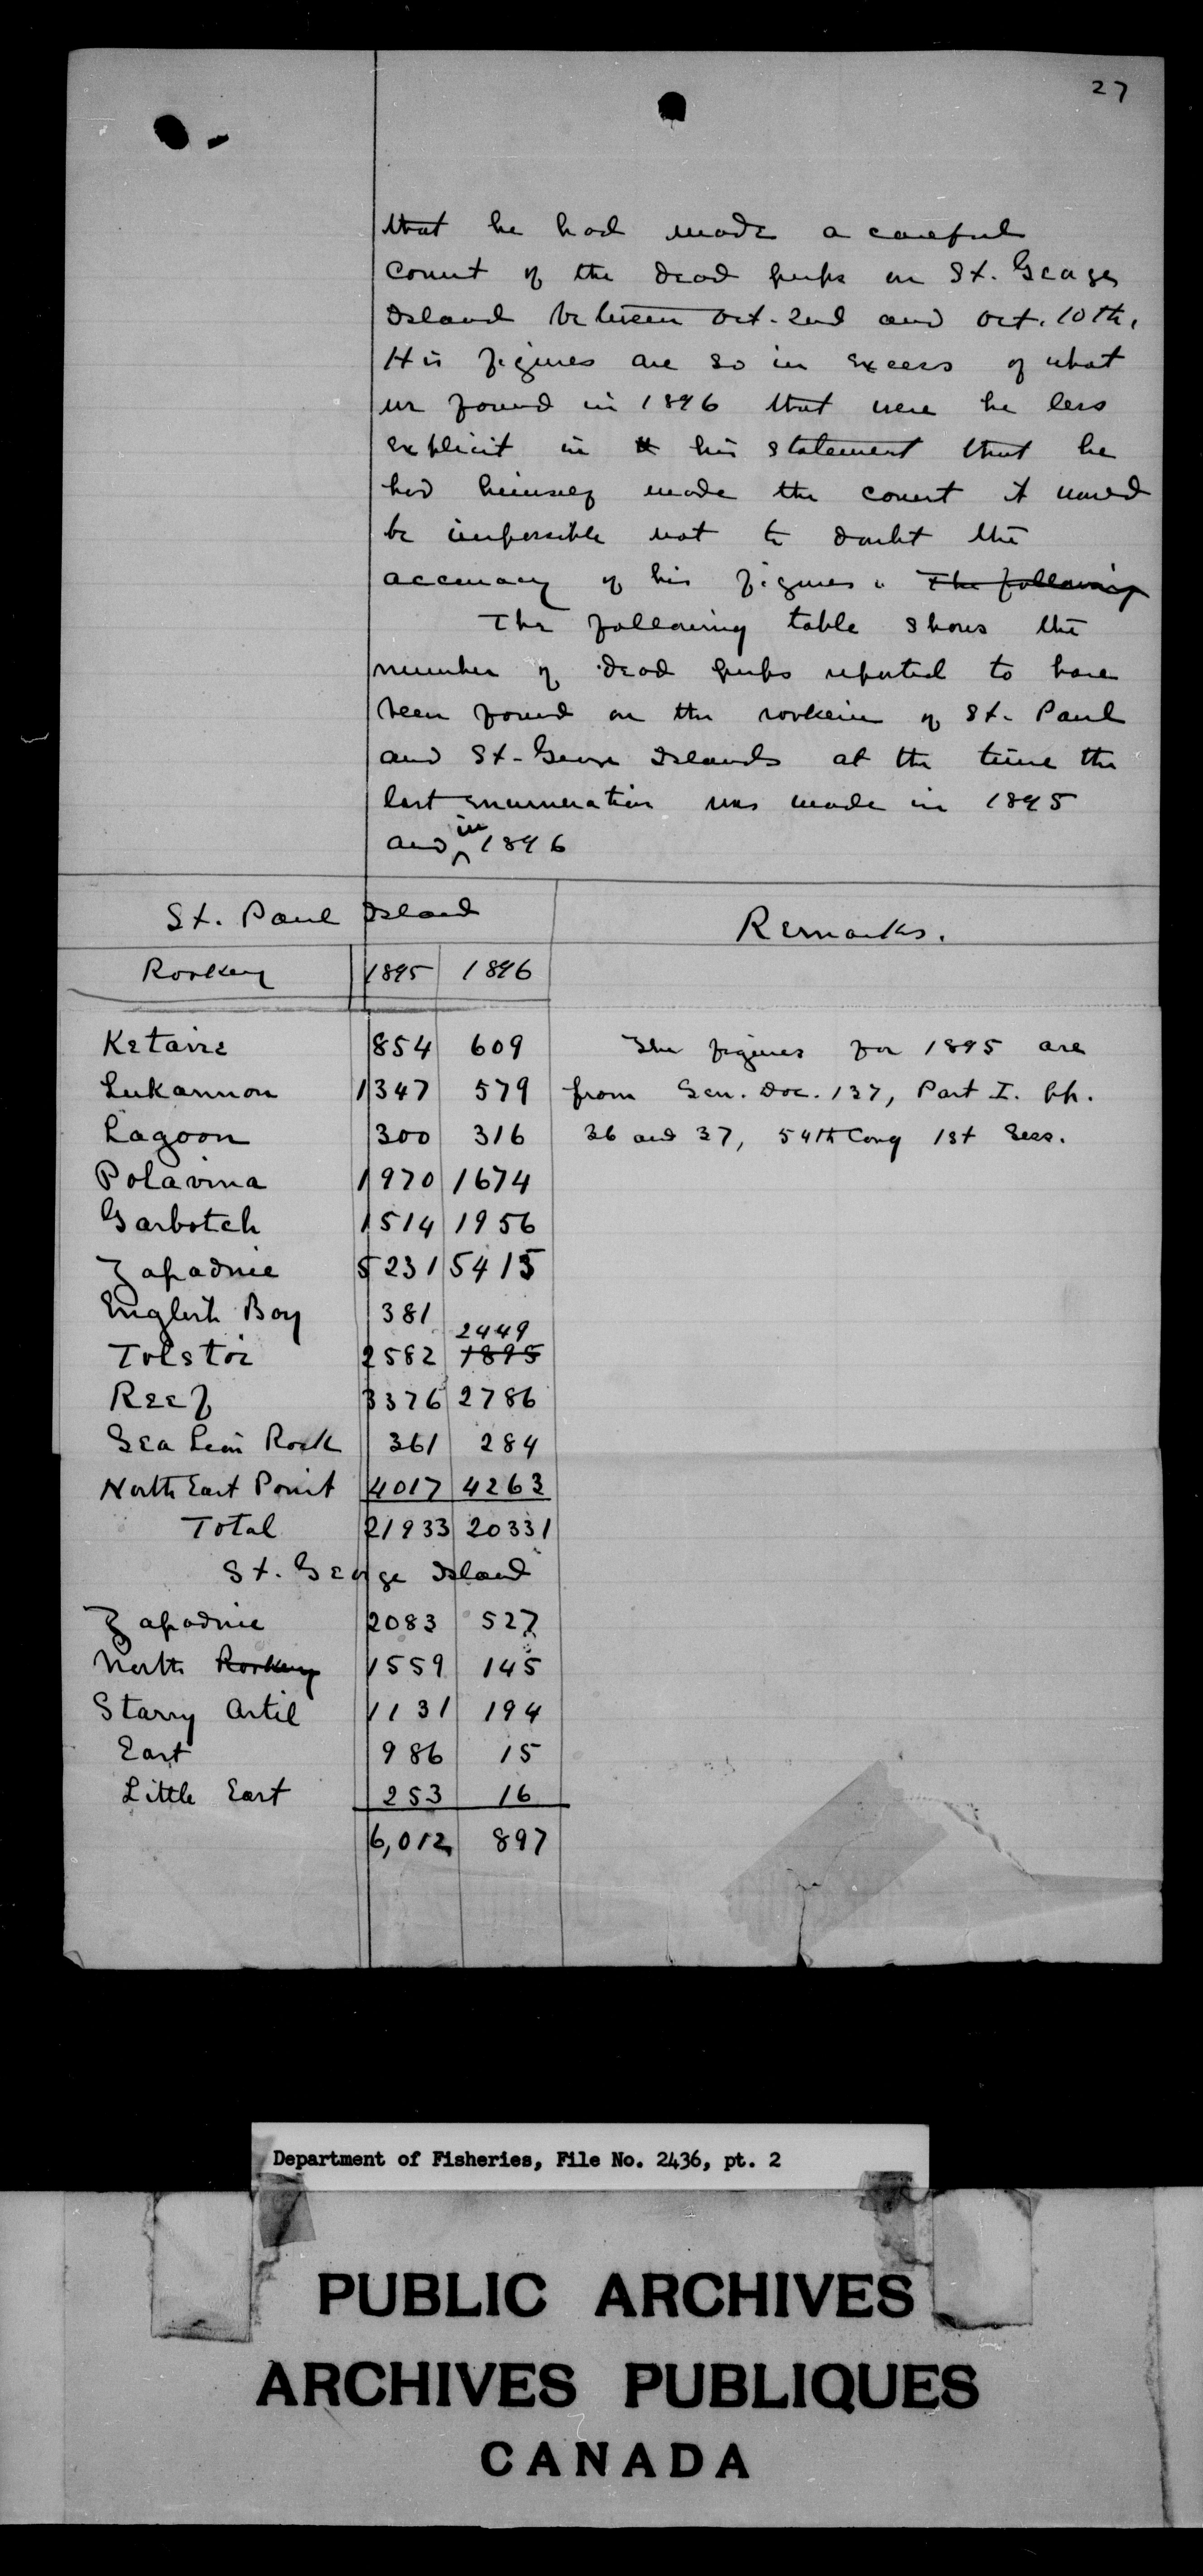 27
that he had made a careful
count of the dead pups on St. George
Island between Oct. 2nd and Oct. 10th.
His figures are so in excess of what
we found in 1896 that were he less
explicit in his statement that he
had himself made the count it would
be impossible not to doubt the
accuracy of his figures. The following
The following table shows the
number of dead pups reported to have
been found on the rookeries of St. Paul
and St. George Islands at the time the
last enumeration was made in 1895
and in 1896
St. Paul Island Remarks.
Rookery 1895 1896
Ketavie 854 609 The figures for 1895 are
Lukannon 1347 579 from Sen. Doc. 137, Part I. pp.
Lagoon 300 316 36 and 37, 54th Cong 1st Sess.
Polavina 1970 1674
Garbotch 1514 1956
Zapadnie 5231 5415
English Bay 381
2449
Tolstoi 2582 1895
Reef 3376 2786
Sea Lion Rock 361 284
North East Point 4017 4263
Total 21933 20331
St. George Island
Zapadnie 2083 527
North Rookery 1559 145
Starry Artil 1131 194
East 986 15
Little East 253 16
6,012 897
Department of Fisheries, File No. 2436, pt. 2
PUBLIC ARCHIVES
ARCHIVES PUBLIQUES
CANADA